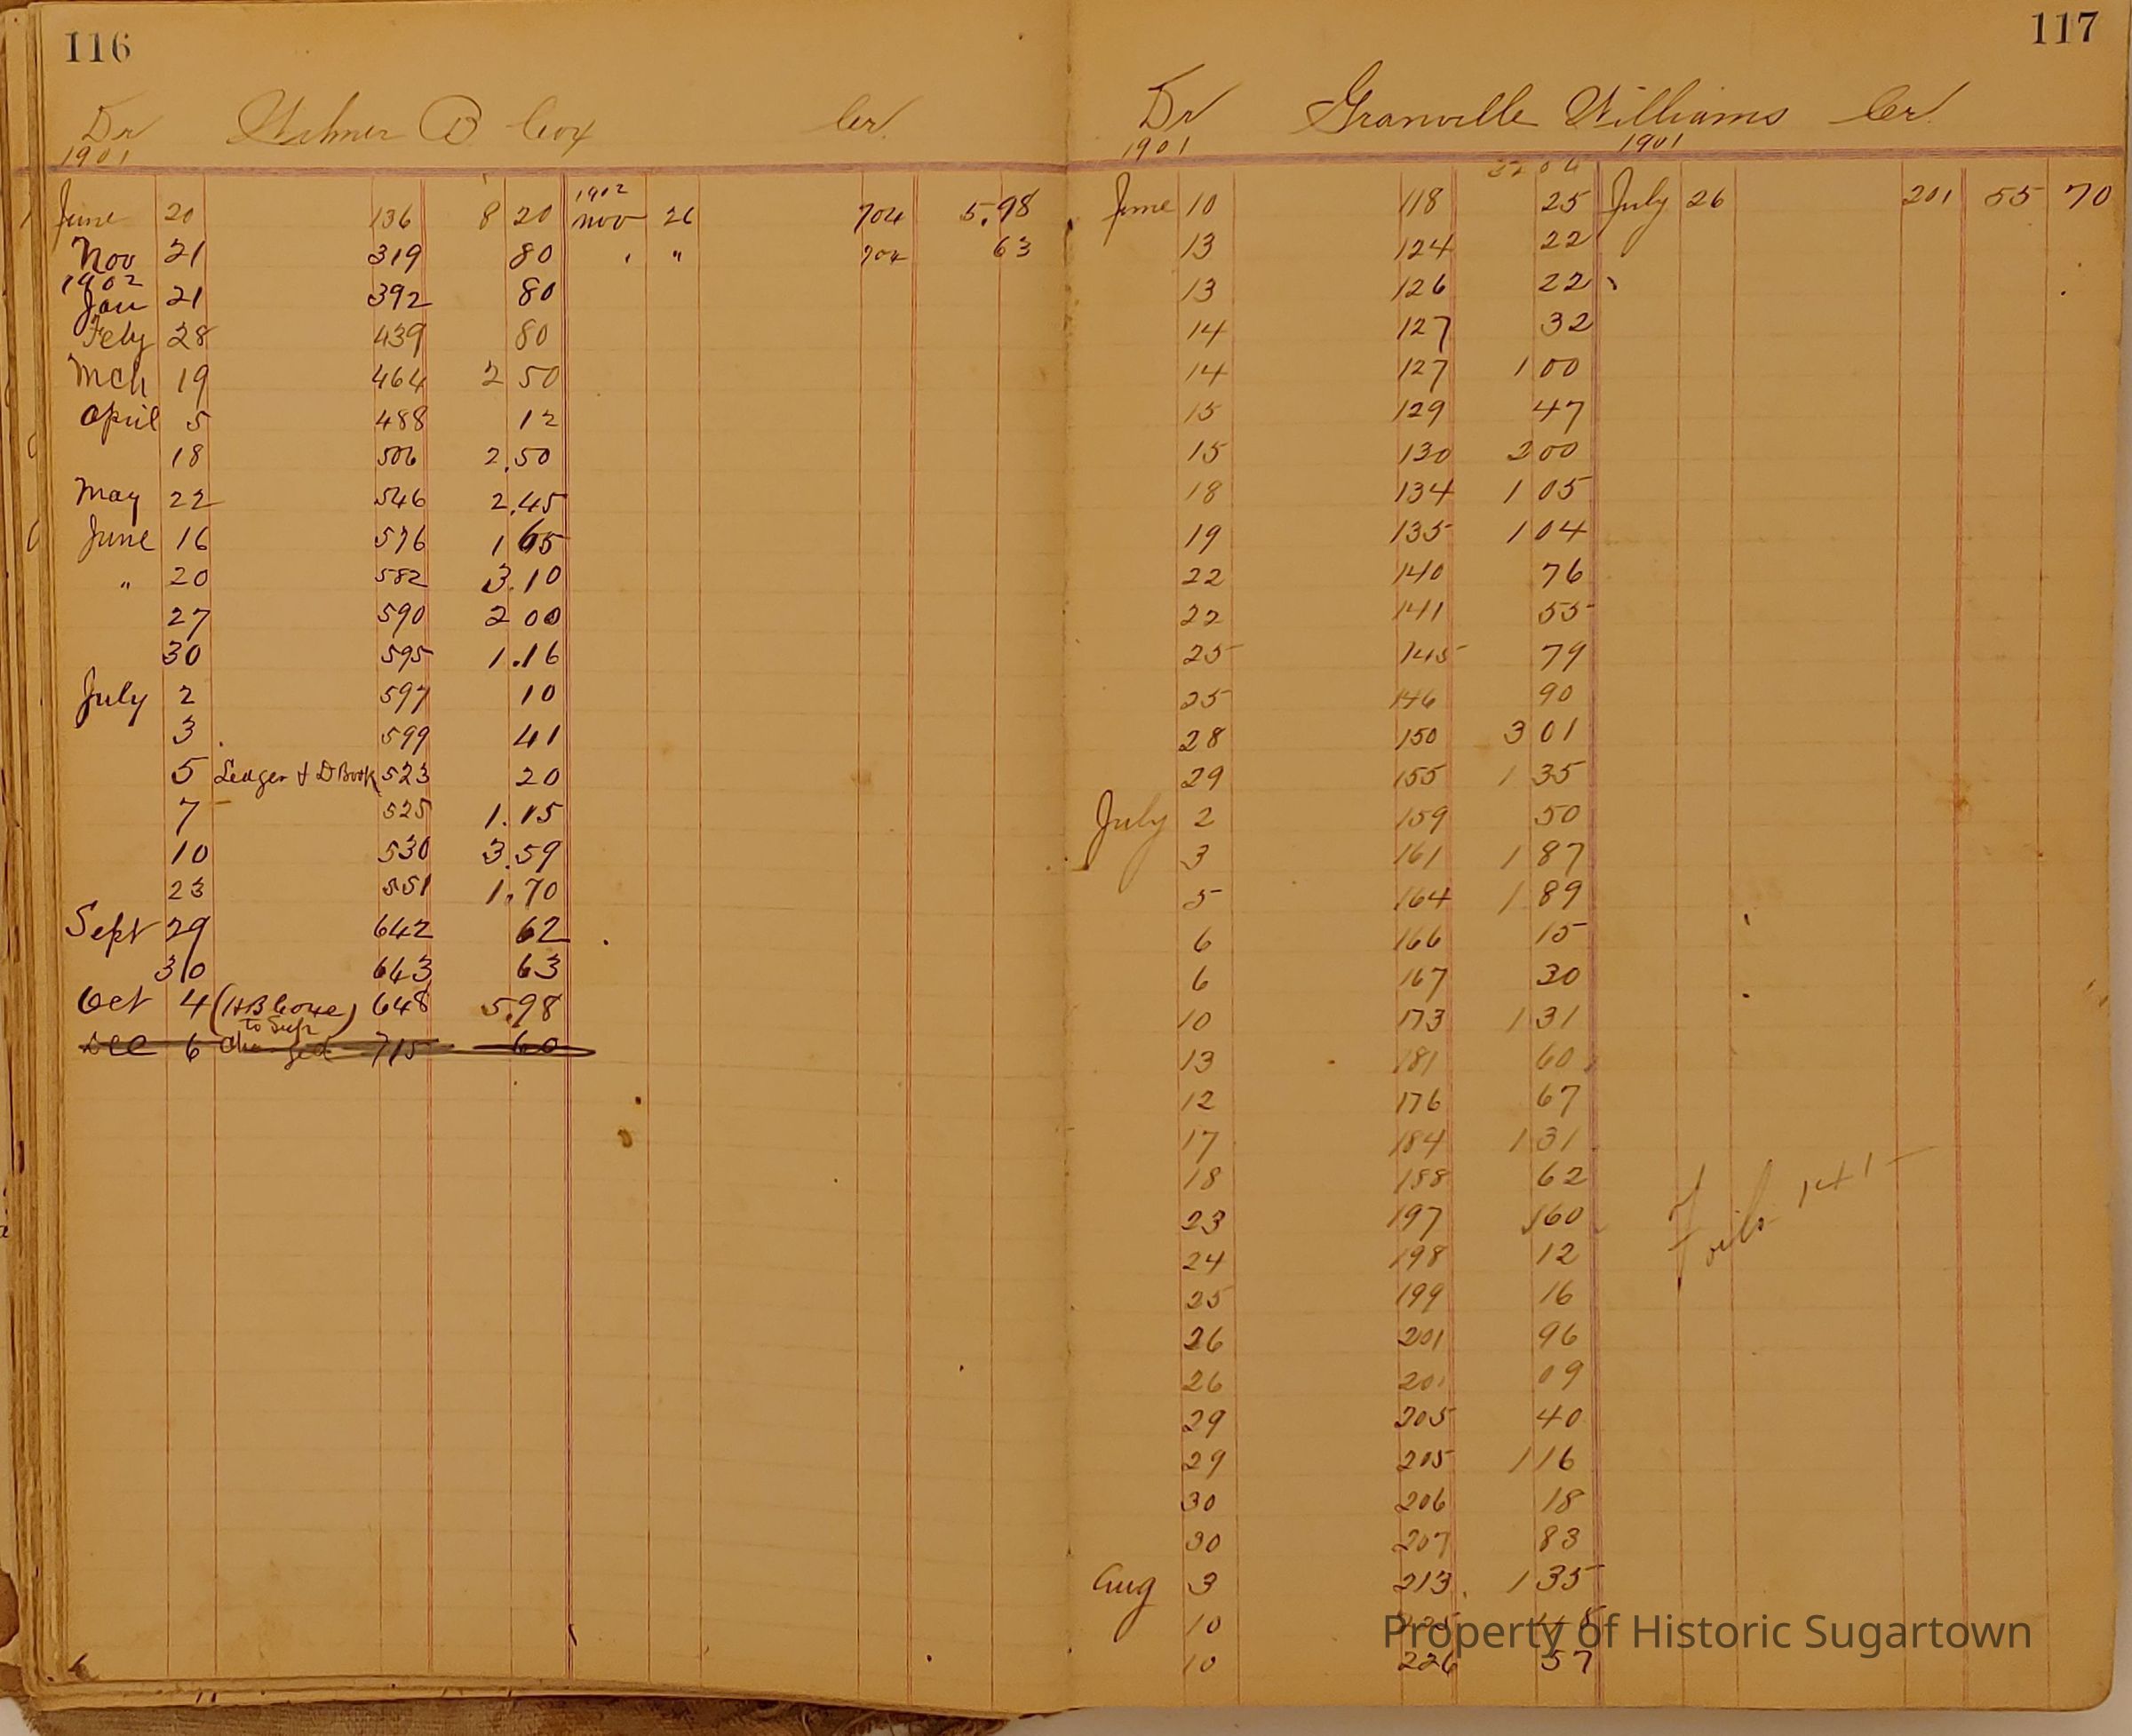 116
Dr Wilmer B Cox Cr
1901
June 20 136 8 20 1902 Nov 26 704 5.98
Nov 21 319 80 " " 704 63
1902
Jan 21 392 80
Feby 28 439 80
Mch 19 464 2 50
April 5 488 12
18 506 2.50
May 22 546 2.45
June 16 576 1 65
" 20 582 3.10
27 590 2 00
30 595 1.16
July 2 597 10
3 599 41
5 Ledger & D Book 523 20
7 525 1.15
10 530 3.59
23 551 1.70
Sept 29 642 62
30 643 63
Oct 4 (H B Coxe) 648 5.98
to Supr
Dec 6 Charged 715 60
117
Dr Granville Williams Cr
1901 1901
June 10 118 25 July 26 201 55 70
13 124 22
13 126 22
14 127 32
14 127 1 00
15 129 47
15 130 2 00
18 134 1 05
19 135 1 04
22 140 76
22 141 55
25 145 79
25 146 90
28 150 3 01
29 155 1 35
July 2 159 50
3 161 1 87
5 164 1 89
6 166 15
6 167 30
10 173 1 31
13 181 60
12 176 67
17 184 1 31
18 188 62
23 197 1 60
24 198 12
25 199 16
26 201 96
26 201 09
29 205 40
29 205 1 16
30 206 18
30 207 83
Aug 3 213 1 35
10
10 226 57
Folio 141
Property of Historic Sugartown